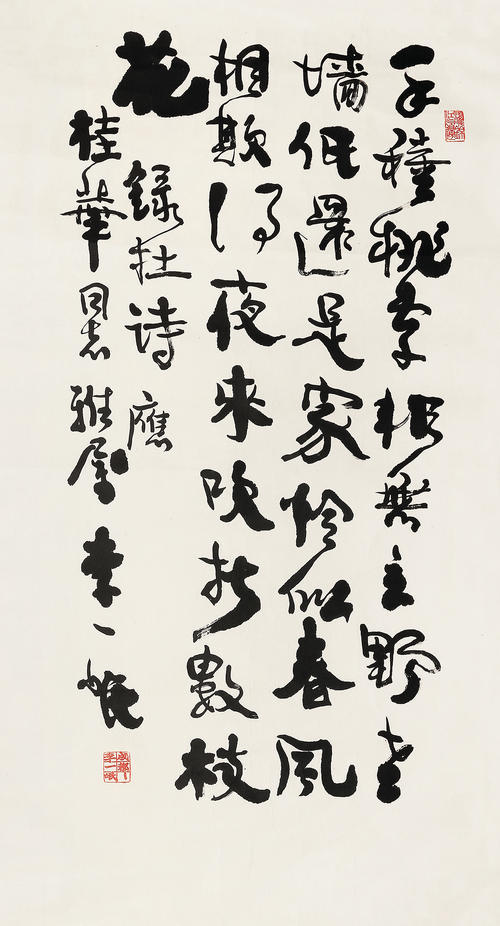 手種桃李非無主野老
墻低還是家恰似春風
相欺得夜來吹折數枝
花 錄杜詩 應
桂華同志雅屬 李一氓
成都
李一氓